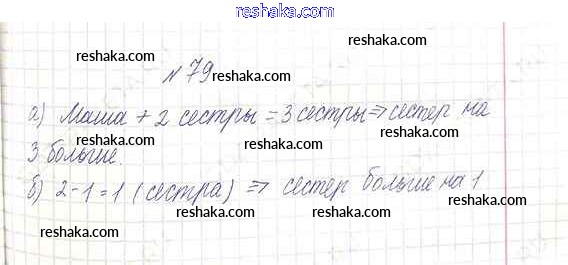 reshaka.com
reshaka.com
reshaka.com
№ 79 reshaka.com
reshaka.com
а) Маша + 2 сестры = 3 сестры ⇒ сестер на
reshaka.com reshaka.com
3 больше.
reshaka.com
б) 2-1=1 (сестра) ⇒ сестер больше на 1
reshaka.com reshaka.com
reshaka.com